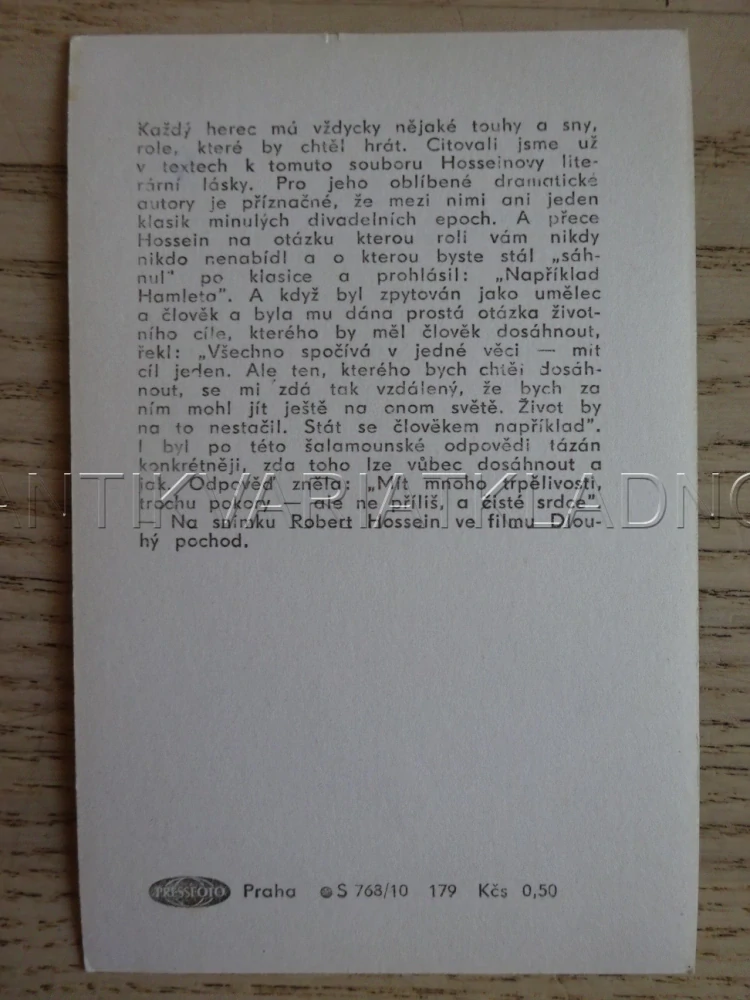 Každý herec má vždycky nějaké touhy a sny,
role, které by chtěl hrát. Citovali jsme už
v textech k tomuto souboru Hosseinovy lite-
rární lásky. Pro jeho oblíbené dramatické
autory je příznačné, že mezi nimi ani jeden
klasik minulých divadelních epoch. A přece
Hossein na otázku kterou roli vám nikdy
nikdo nenabídl a o kterou byste stál „sáh-
nul" po klasice a prohlásil: „Například
Hamleta". A když byl zpytován jako umělec
a člověk a byla mu dána prostá otázka život-
ního cíle, kterého by měl člověk dosáhnout,
řekl: „Všechno spočívá v jedné věci — mít
cíl jeden. Ale ten, kterého bych chtěl dosáh-
nout, se mi zdá tak vzdálený, že bych za
ním mohl jít ještě na onom světě. Život by
na to nestačil. Stát se člověkem například".
I byl po této šalamounské odpovědi tázán
konkrétněji, zda toho lze vůbec dosáhnout a
jak. Odpověď zněla: „Mít mnoho trpělivosti,
trochu pokory — ale ne příliš, a čisté srdce".
ANTIKVARIAT KLADNO
Na snímku Robert Hossein ve filmu Dlou-
hý pochod.
PRESSFOTO Praha S 768/10 179 Kčs 0,50